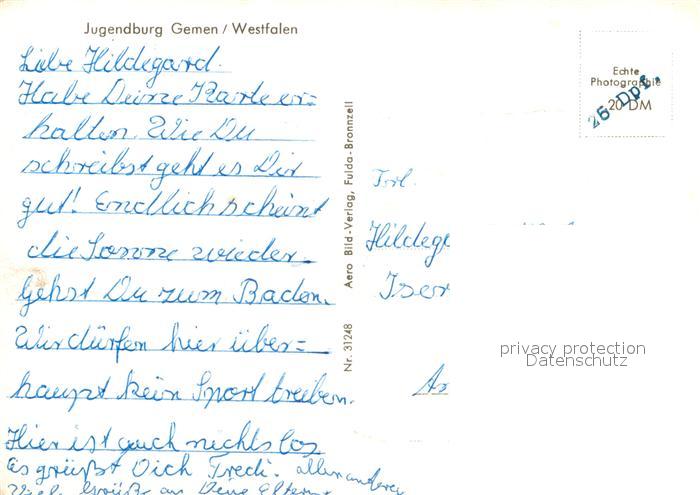 Jugendburg Gemen / Westfalen
Liebe Hildegard.
Habe Deine Karte er=
halten. Wie Du
schreibst geht es Dir
gut! Endlich scheint
die Sonne wieder.
Gehst Du zum Baden.
Wir dürfen hier über=
haupt kein Sport treiben.
Hier ist auch nichts los
Es grüßt Dich Fredi. allen andere
Viel. Grüße an Deine Eltern
Aero Bild-Verlag, Fulda-Bronnzell
Nr. 31248
Echte
Photographie
20 DM
25 Dpf.
Frl.
Hildeg
Iser
privacy protection
Datenschutz